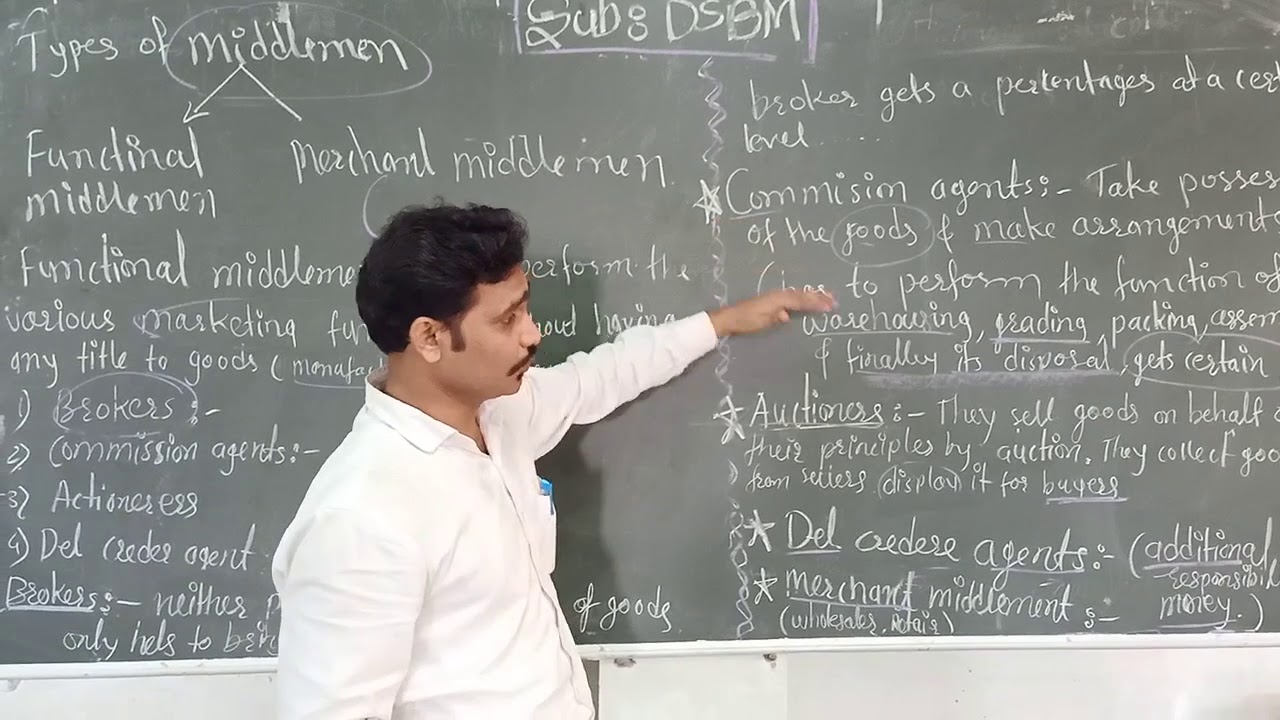 Sub: DSBM
Types of middlemen
Functinal merchant middlemen
middlemen
Functional middleme perform the
various marketing fun having
any title to goods (manufa
1) Brokers :-
2) Commission agents:-
3) Actioneress
4) Del creder agent
Brokers:- neither of goods
only hels to
broker gets a percentages at a cert
level......
Commision agents:- Take posses
of the goods & make arrangements
to perform the function of
warehousing, grading, packing, assem
& finally its disposal, gets certain
Auctiners:- They sell goods on behalf
their principles by auction. They collect goo
from sellers (display) it for buyers
Del credere agents:- (additional
responsibil
merchant middlement :- money.)
(wholesaler, retair)